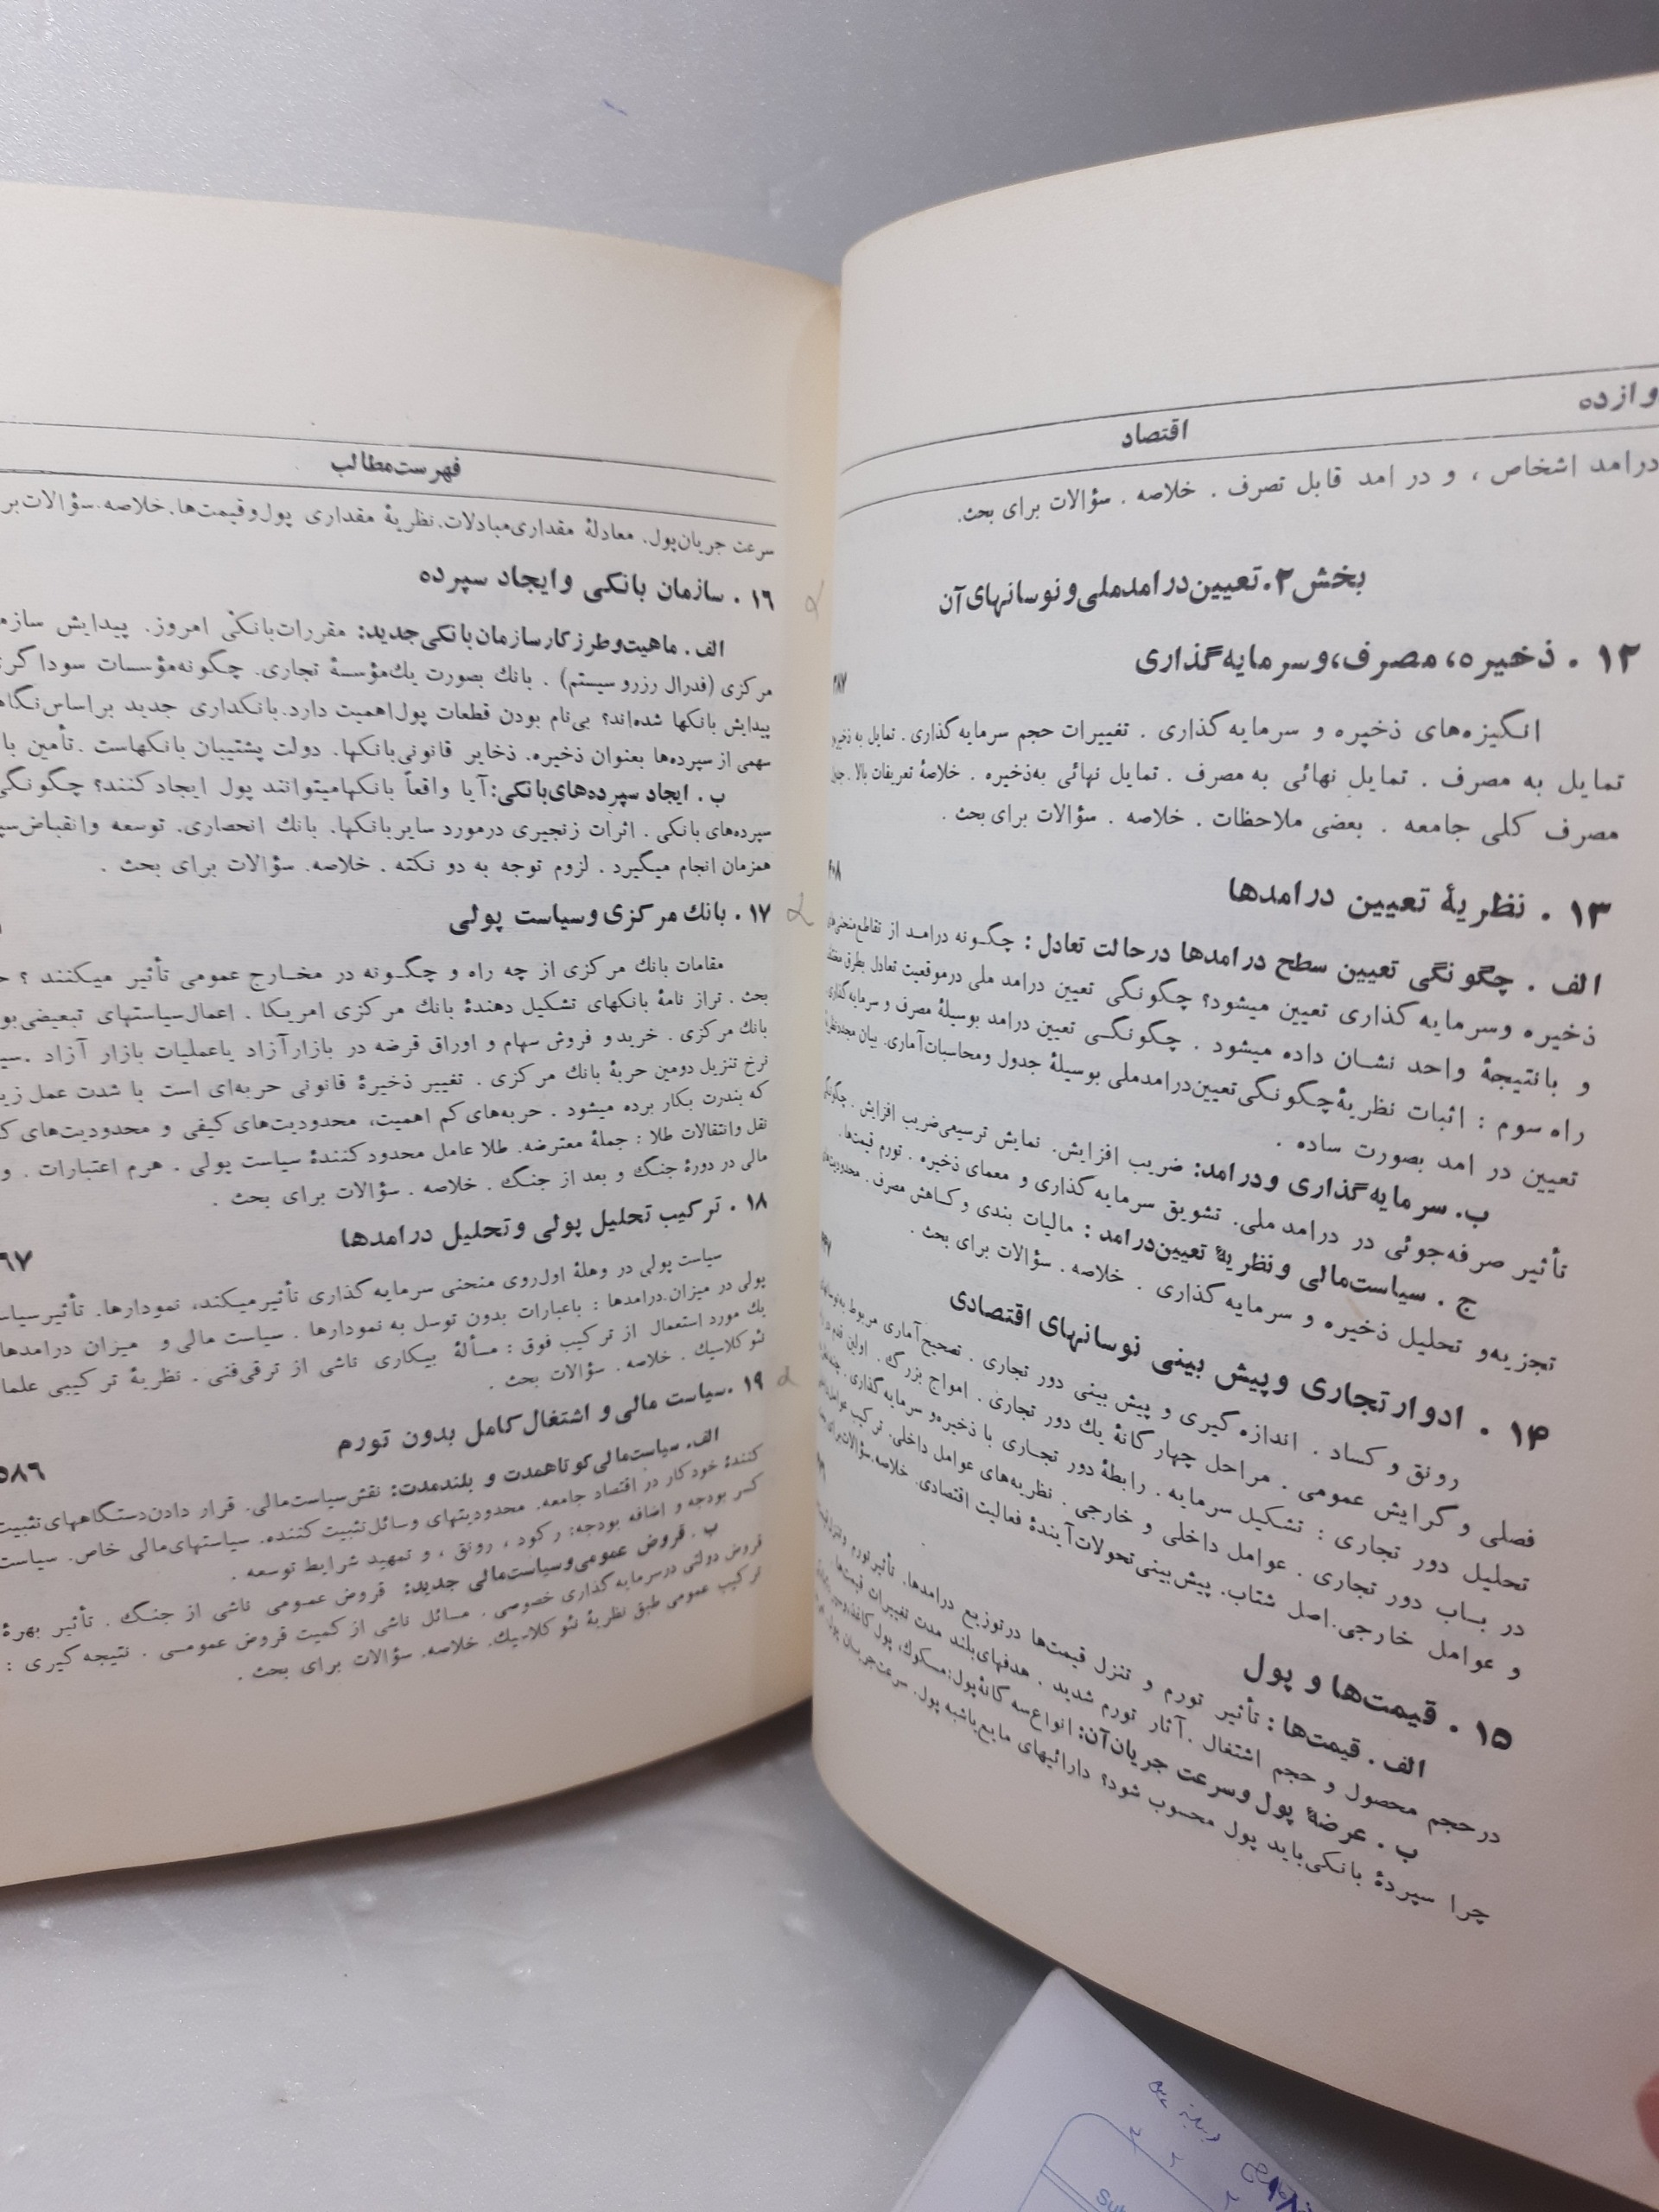 اقتصاد
درامد اشخاص ، و در امد قابل تصرف . خلاصه . سؤالات برای بحث.
بخش ۲. تعیین درامد ملی و نوسانهای آن
۱۲ . ذخیره، مصرف، و سرمایه گذاری
انگیزه‌های ذخیره و سرمایه گذاری . تغییرات حجم سرمایه گذاری . تمایل به ذخیره
تمایل به مصرف . تمایل نهائی به مصرف . تمایل نهائی به ذخیره . خلاصهٔ تعریفات بالا .
مصرف کلی جامعه . بعضی ملاحظات . خلاصه . سؤالات برای بحث .
۱۳ . نظریهٔ تعیین درامدها
الف . چگونگی تعیین سطح درامدها درحالت تعادل : چگونه درامد از تقاطع منحنی‌های
ذخیره و سرمایه گذاری تعیین میشود؟ چگونگی تعیین درامد ملی درموقعیت تعادل بطرق مختلف
و بانتیجهٔ واحد نشان داده میشود . چگونگی تعیین درامد بوسیلهٔ مصرف و سرمایه گذاری.
راه سوم : اثبات نظریهٔ چگونگی تعیین درامد ملی بوسیلهٔ جدول ومحاسبات آماری. بیان مجدد نظریهٔ
تعیین در امد بصورت ساده .
ب. سرمایه گذاری و درامد: ضریب افزایش. نمایش ترسیمی ضریب افزایش . چگونگی
تأثیر صرفه جوئی در درامد ملی. تشویق سرمایه گذاری و معمای ذخیره . تورم قیمت‌ها.
ج . سیاست مالی و نظریهٔ تعیین درامد : مالیات بندی و کاهش مصرف .
تجزیه و تحلیل ذخیره و سرمایه گذاری . خلاصه . سؤالات برای بحث .
۱۴ . ادوار تجاری و پیش بینی نوسانهای اقتصادی
رونق و کساد . اندازه گیری و پیش بینی دور تجاری . تصحیح آماری مربوط به نوسانهای
فصلی و گرایش عمومی . مراحل چهار گانهٔ یك دور تجاری . امواج بزرگ . اولین قدم در
تحلیل دور تجاری : تشکیل سرمایه . رابطهٔ دور تجاری با ذخیره و سرمایه گذاری .
در باب دور تجاری . عوامل داخلی و خارجی . نظریه‌های عوامل داخلی. ترکیب عوامل داخلی
و عوامل خارجی.اصل شتاب. پیش‌بینی تحولات آیندهٔ فعالیت اقتصادی. خلاصه.سؤالات برای بحث
۱۵ . قیمت‌ها و پول
الف . قیمت‌ها : تأثیر تورم و تنزل قیمت‌ها درتوزیع درامدها. تأثیر تورم و تنزل قیمت‌ها
درحجم محصول و حجم اشتغال .آثار تورم شدید . هدفهای بلند مدت تغییرات قیمت‌ها.
ب . عرضهٔ پول وسرعت جریان آن: انواع سه گانهٔ پول:مسکوك، پول کاغذی و سپرده
چرا سپردهٔ بانکی باید پول محسوب شود؟ دارائیهای مایع یاشبه پول. سرعت جریان پول.
فهرست مطالب
سرعت جریان پول. معادلهٔ مقداری مبادلات.نظریهٔ مقداری پول وقیمت‌ها.خلاصه.سؤالات
۱۶ . سازمان بانکی و ایجاد سپرده
الف . ماهیت و طرز کار سازمان بانکی جدید: مقررات بانکی امروز. پیدایش
مرکزی (فدرال رزرو سیستم) . بانك بصورت یك مؤسسهٔ تجاری. چگونه مؤسسات
پیدایش بانکها شده‌اند؟ بی‌نام بودن قطعات پول اهمیت دارد.بانکداری جدید براساس
سهمی از سپرده‌ها بعنوان ذخیره. ذخایر قانونی بانکها. دولت پشتیبان بانکهاست .تأمین
ب . ایجاد سپرده‌های بانکی:آیا واقعاً بانکها میتوانند پول ایجاد کنند؟ چگونگی
سپرده‌های بانکی . اثرات زنجیری درمورد سایر بانکها. بانك انحصاری. توسعه وانقباض
همزمان انجام میگیرد . لزوم توجه به دو نکته . خلاصه. سؤالات برای بحث .
۱۷ . بانك مرکزی و سیاست پولی
مقامات بانك مرکزی از چه راه و چگونه در مخارج عمومی تأثیر میکنند ؟
بحث . تراز نامهٔ بانکهای تشکیل دهندهٔ بانك مرکزی امریکا . اعمال سیاستهای تبعیضی
بانك مرکزی . خرید و فروش سهام و اوراق قرضه در بازار آزاد یا عملیات بازار آزاد .
نرخ تنزیل دومین حربهٔ بانك مرکزی . تغییر ذخیرهٔ قانونی حربه‌ای است با شدت عمل
که بندرت بکار برده میشود . حربه‌های کم اهمیت، محدودیت‌های کیفی و محدودیت‌های
نقل وانتقالات طلا : جملهٔ معترضه. طلا عامل محدود کنندهٔ سیاست پولی . هرم اعتبارات . و
مالی در دورهٔ جنگ و بعد از جنگ . خلاصه . سؤالات برای بحث .
۱۸ . ترکیب تحلیل پولی و تحلیل درامدها
سیاست پولی در وهلهٔ اول روی منحنی سرمایه گذاری تأثیر میکند، نمودارها. تأثیر
پولی در میزان درامدها : باعبارات بدون توسل به نمودارها . سیاست مالی و میزان درامدها
یك مورد استعمال از ترکیب فوق : مسألهٔ بیکاری ناشی از ترقی فنی . نظریهٔ ترکیبی علمای
نئو کلاسیك . خلاصه . سؤالات بحث .
۱۹ . سیاست مالی و اشتغال کامل بدون تورم
الف. سیاست مالی کوتاهمدت و بلندمدت: نقش سیاست مالی. قرار دادن دستگاههای تثبیت
کنندهٔ خودکار در اقتصاد جامعه. محدودیتهای وسائل تثبیت کننده. سیاستهای مالی خاص. سیاست
کسر بودجه و اضافه بودجه: رکود ، رونق ، و تمهید شرایط توسعه .
ب . قروض عمومی و سیاست مالی جدید: قروض عمومی ناشی از جنگ . تأثیر بهرهٔ
قروض دولتی درسرمایه گذاری خصوصی . مسائل ناشی از کمیت قروض عمومی . نتیجه گیری :
ترکیب عمومی طبق نظریهٔ نئو کلاسیك. خلاصه. سؤالات برای بحث .